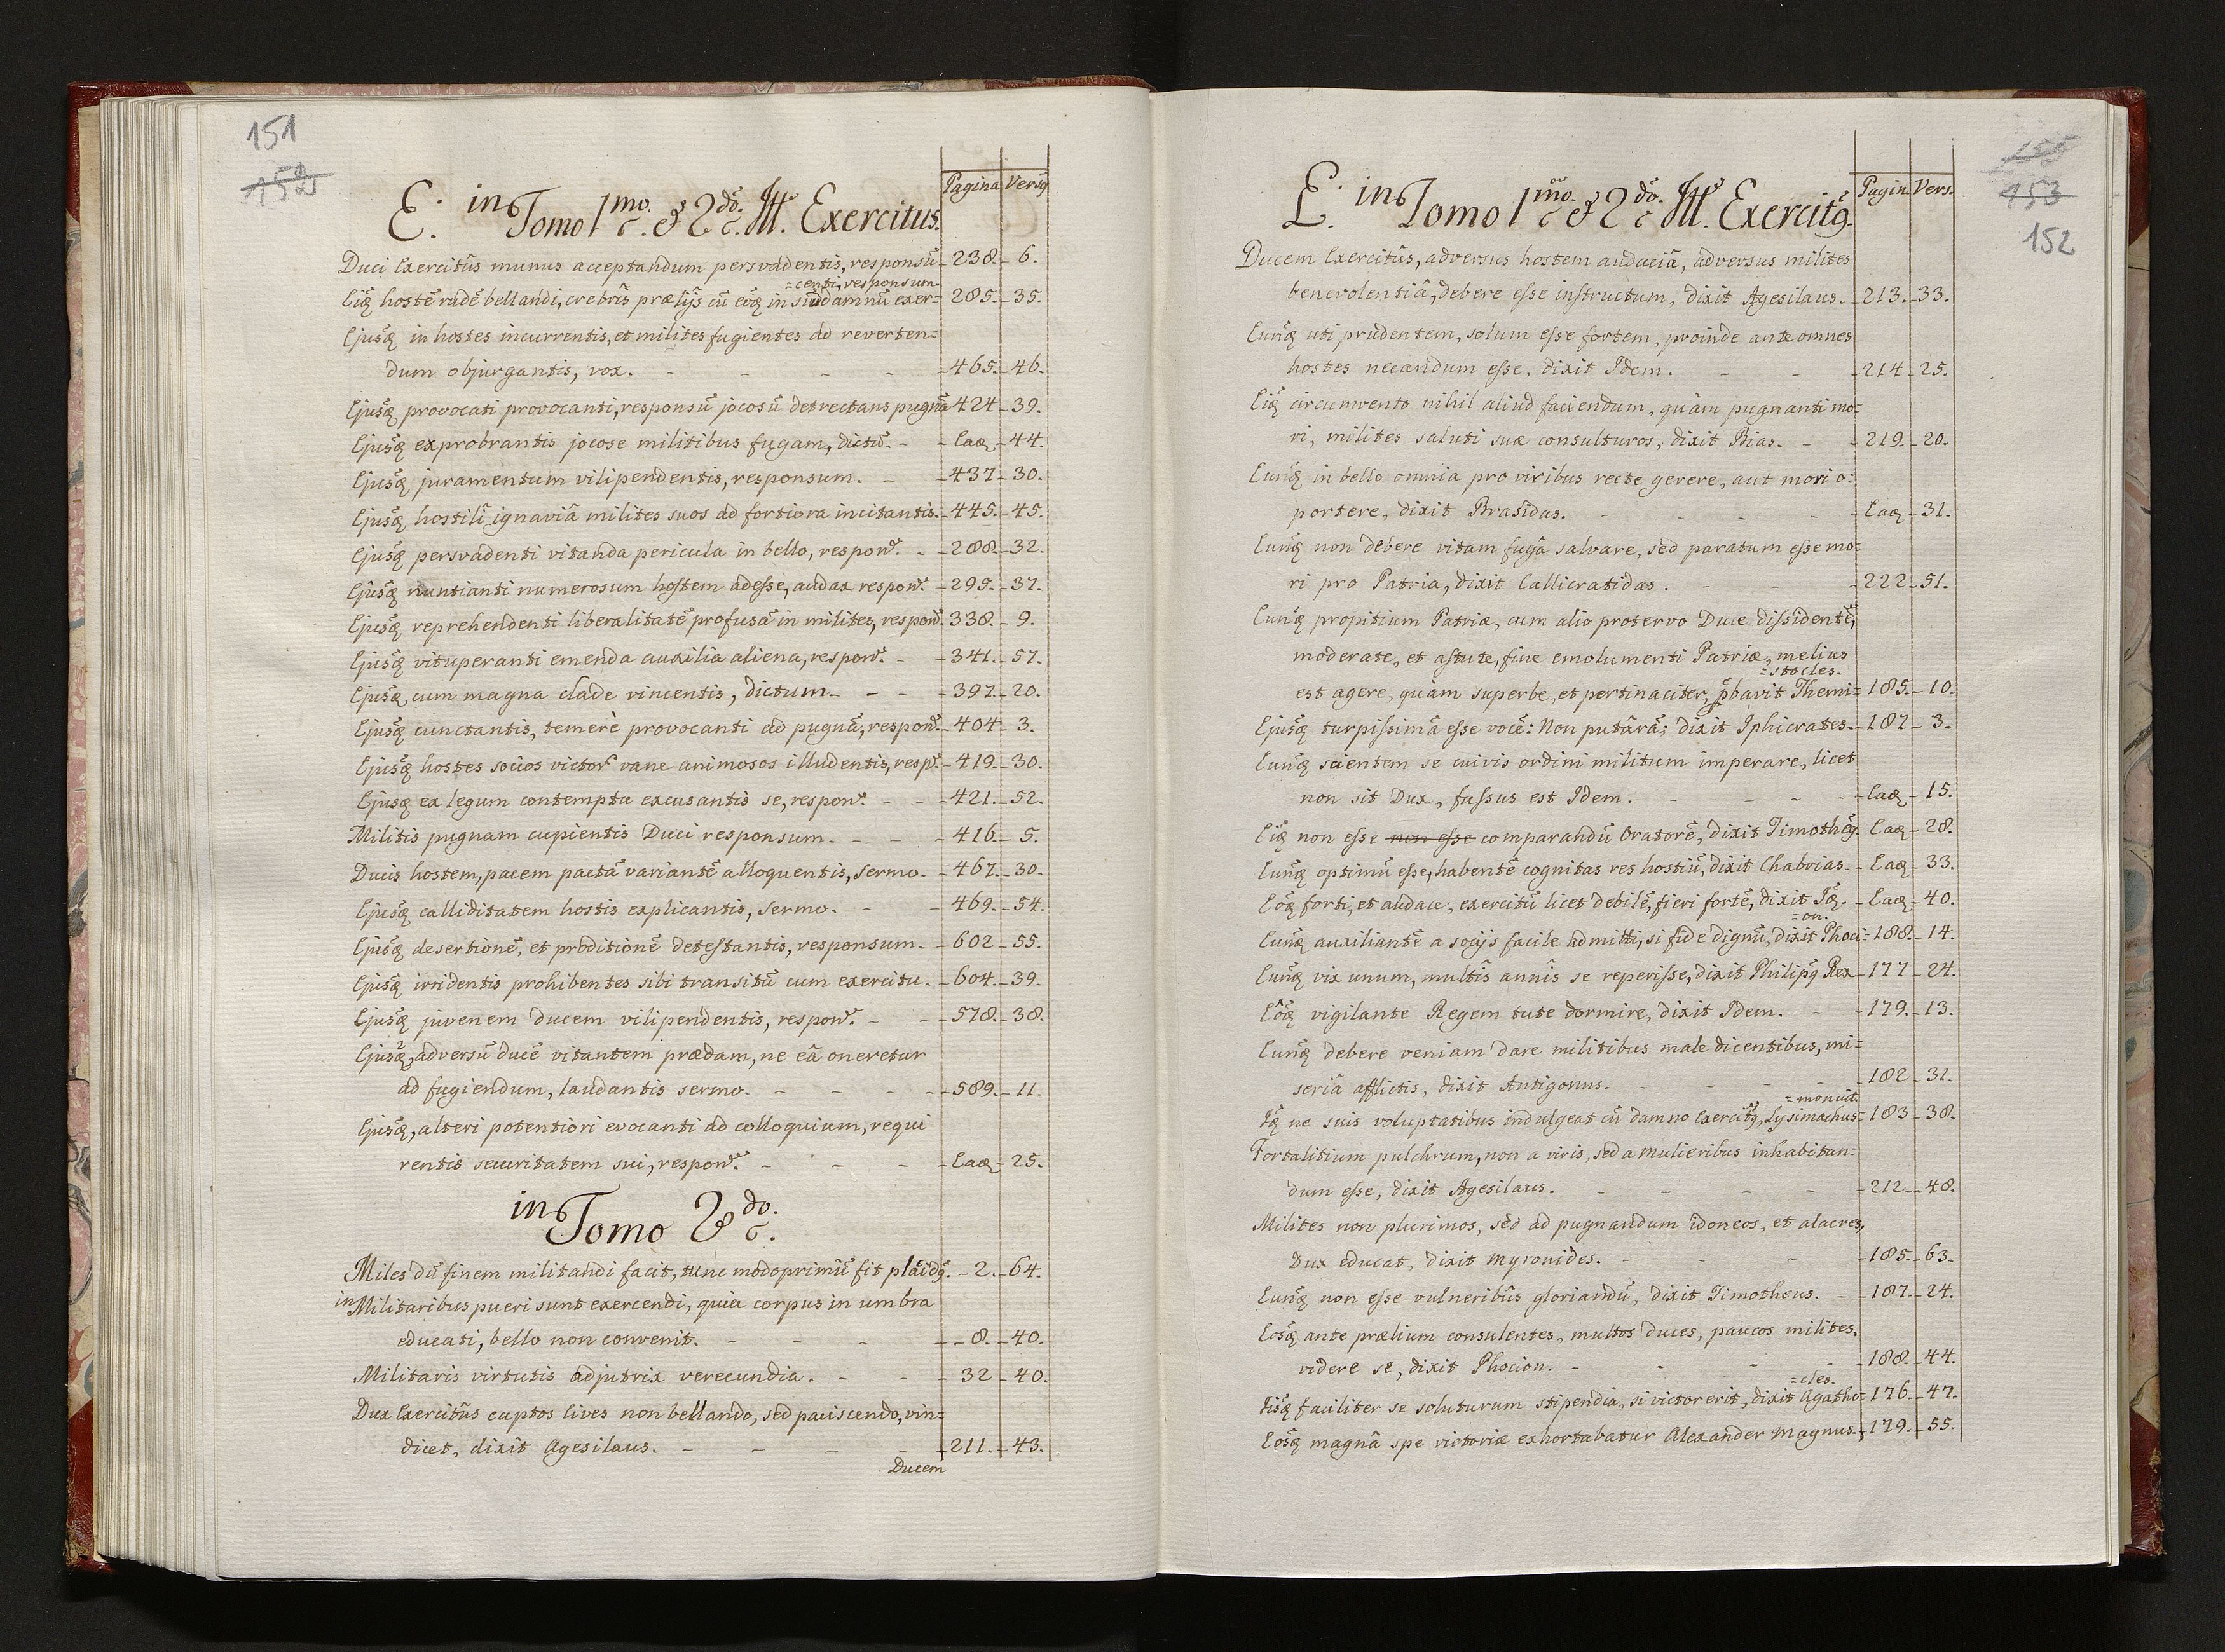 151
152
E. in Tomo 1mo. & 2do. Ut. Exercitus.
Pagina Versq
Duci Exercitûs munus acceptandum persvadentis, responsũ - 238. - 6.
=centi, responsum.
Eiq̃ hostẽ rudẽ bellandi, crebris prælijs cũ eõq̃ in suũ damnũ exer= 285. - 35.
Ejusq̃ in hostes incurrentis, et milites fugientes ad reverten=
dum objurgantis, vox. - 465. - 46.
Ejusq̃ provocati provocanti, responsũ jocosũ detrectans pugnã 424 - 39.
Ejusq̃ exprobrantis jocose militibus fugam, dictũ. - Eaq - 44.
Ejusq̃ juramentum vilipendentis, responsum. - 437 - 30.
Ejusq̃ hostili ignaviâ milites suos ad fortiora incitantis. - 445. - 45.
Ejusq̃ persvadenti vitanda pericula in bello, respons. - 288 - 32.
Ejusq̃ nuntianti numerosum hostem adesse, audax respons. - 295. - 37.
Ejusq̃ reprehendenti liberalitatẽ profusã in milites, respons. 338. - 9.
Ejusq̃ vituperanti emenda auxilia aliena, respons. - 341. - 57.
Ejusq̃ cum magna clade vincentis, dictum. - 397. - 20.
Ejusq̃ cunctantis, temerè provocanti ad pugnã, respons. - 404 - 3.
Ejusq̃ hostes socios victor vane animosos illudentis, resp. - 419. - 30.
Ejusq̃ ex legum contemptu excusantis se, respons. - 421. - 52.
Militis pugnam cupientis Duci responsum. - 416. - 5.
Ducis hostem, pacem pactã variantẽ alloquentis, sermo. - 467. - 30.
Ejusq̃ calliditatem hostis explicantis, sermo. - 469. - 54.
Ejusq̃ desertionẽ, et proditionẽ detestantis, responsum. - 602 - 55.
Ejusq̃ irridentis prohibentes sibi transitũ cum exercitu. - 604. - 39.
Ejusq̃ juvenem ducem vilipendentis, respons. - 578. - 38.
Ejusq̃, adversũ ducẽ vitantem prædam, ne eâ oneretur
ad fugiendum, laudantis sermo. - 589. - 11.
Ejusq̃, alteri potentiori evocanti ad colloquium, requi
rentis securitatem sui, respons. - Eaq - 25.
in Tomo 2do.
Miles dũ finem militandi facit, tunc modo primũ fit placidq. - 2. - 64.
in Militaribus pueri sunt exercendi, quia corpus in umbra
educati, bello non convenit. - 8. - 40.
Militaris virtutis adjutrix verecundia. - 32 - 40.
Dux Exercitûs captos Cives non bellando, sed paciscendo, vin=
dicet, dixit Agesilaus. - 211. - 43.
Ducem
155
153
152
E. in Tomo 1mo. & 2do. Ut. Exercitq.
Pagin Vers.
Ducem Exercitûs, adversus hostem audaciâ, adversus milites
benevolentiâ, debere esse instructum, dixit Agesilaus. - 213. - 33.
Eunq̃ uti prudentem, solum esse fortem, proinde ante omnes
hostes necandum esse, dixit Idem. - 214 - 25.
Eiq̃ circumvento nihil aliud faciendum, quàm pugnanti mo=
ri, milites saluti suæ consulturos, dixit Bias. - 219. - 20.
Eunq̃ in bello omnia pro viribus recte gerere, aut mori o=
portere, dixit Brasidas. - Eaq - 31.
Eunq̃ non debere vitam fugâ salvare, sed paratum esse mo=
ri pro Patria, dixit Callicratidas. - 222 - 51.
Eunq̃ propitium Patriæ, cum alio protervo Duce dissidentẽ,
moderate, et astute, sine emolumenti Patriæ, melius
=stocles.
est agere, quàm superbe, et pertinaciter, pbavit Themi= 185. - 10.
Ejusq̃ turpissimã esse vocẽ: Non putârã; dixit Iphicrates. - 187 - 3.
Eunq̃ scientem se cuivis ordini militum imperare, licet
non sit Dux, fassus est Idem. - Eaq - 15.
Eiq̃ non esse non esse comparandũ Oratorẽ, dixit Timothẽq. Eaq - 28.
Eunq̃ optimũ esse, habentẽ cognitas res hostiũ, dixit Chabrias. - Eaq - 33.
Eôq̃ forti, et audace, exercitũ licet debilẽ, fieri fortẽ, dixit Iq̃. - Eaq - 40.
=on.
Eunq̃ auxiliantẽ a socijs facile admitti, si fide dignũ, dixit Phoci= 188. - 14.
Eunq̃ vix unum, multîs annîs se reperisse, dixit Philipq Rex - 177 - 24.
Eôq̃ vigilante Regem tute dormire, dixit Idem. - 179. - 13.
Eunq̃ debere veniam dare militibus male dicentibus, mi=
seriâ afflictis, dixit Antigonus. - 182 - 31.
=monuit.
Iq̃ ne suis voluptatibus indulgeat cũ damno Exercitq, Lysimachus= 183 - 38.
Fortalitium pulchrum, non a viris, sed a mulieribus inhabitan=
dum esse, dixit Agesilaus. - 212. - 48.
Milites non plurimos, sed ad pugnandum idoneos, et alacres,
Dux educat, dixit Myronides. - 185. - 63.
Eunq̃ non esse vulneribûs gloriandũ, dixit Timotheus. - 187. - 24.
Eosq̃ ante prælium consulentes, multos duces, paucos milites,
videre se, dixit Phocion. - 188. - 44.
=cles.
Iisq̃ faciliter se soluturum stipendia, si victor erit, dixit Agatho= 176. - 47.
Eosq̃ magnâ spe victoriæ exhortabatur Alexander Magnus. - 179. - 55.